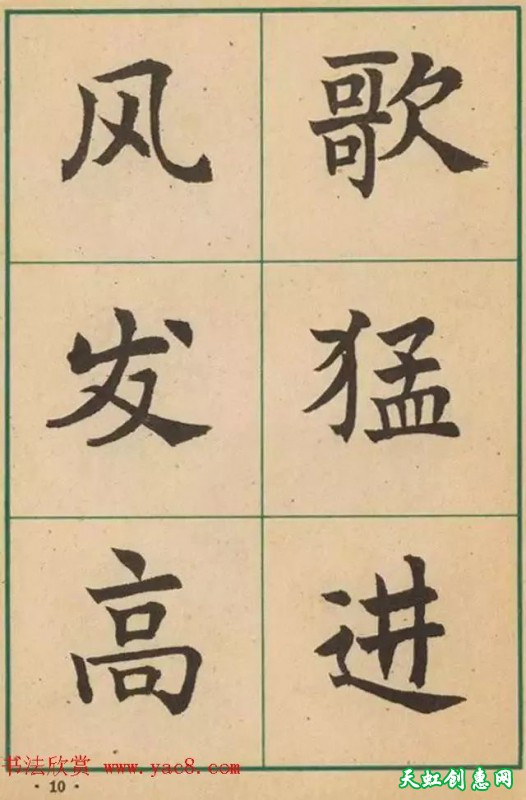 歌猛进
风发高
书法欣赏 www.yac8.com
· 10 ·
天虹创惠网